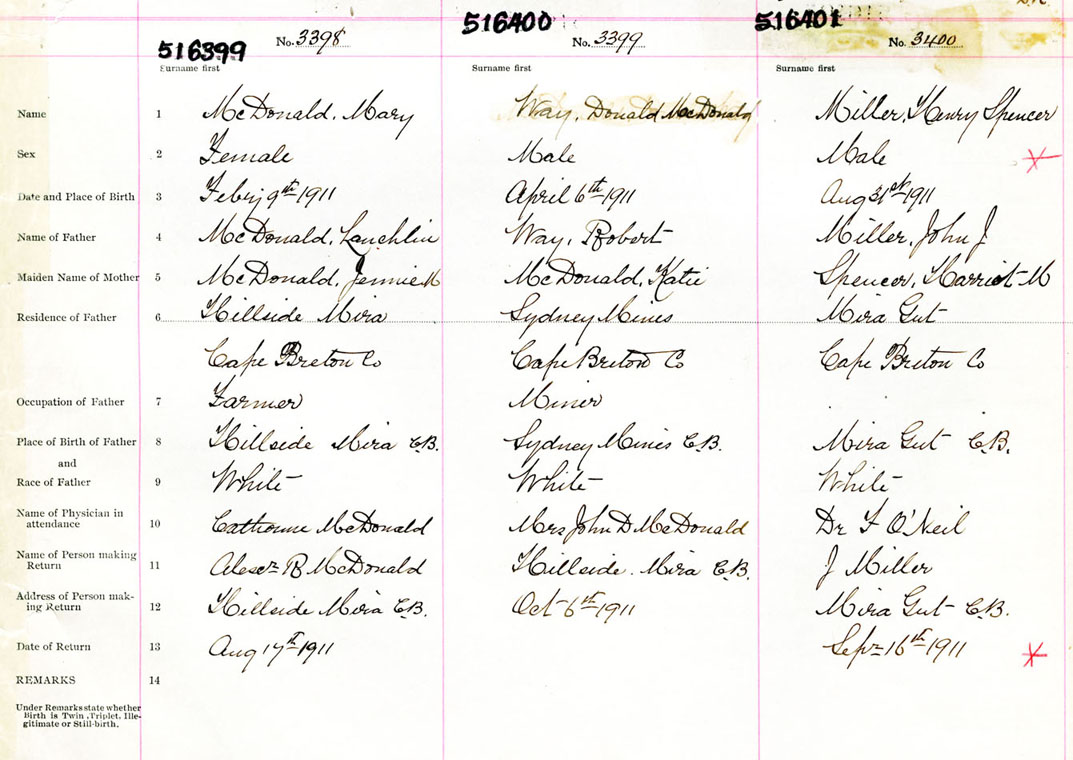 516399
No. 3398
516400
No. 3399
516401
No. 3400
Surname first
Surname first
Surname first
Name 1 McDonald, Mary Way, Donald McDonald Miller, Henry Spencer
Sex 2 Female Male Male
Date and Place of Birth 3 Feby 9th 1911 April 6th 1911 Aug 31st 1911
Name of Father 4 McDonald, Lauchlin Way, Robert Miller, John J
Maiden Name of Mother 5 McDonald, Jennie M McDonald, Katie Spencer, Harriet M
Residence of Father 6 Hillside Mira Sydney Mines Mira Gut
Cape Breton Co Cape Breton Co Cape Breton Co
Occupation of Father 7 Farmer Miner
Place of Birth of Father 8 Hillside Mira C.B. Sydney Mines C.B. Mira Gut C.B.
and
Race of Father 9 White White White
Name of Physician in
attendance 10 Catherine McDonald Mrs John D McDonald Dr F O'Neil
Name of Person making
Return 11 Alexr R McDonald Hillside. Mira C.B. J Miller
Address of Person mak-
ing Return 12 Hillside Mira C.B. Oct 6th 1911 Mira Gut C.B.
Date of Return 13 Aug 17th 1911 Sept 16th 1911
REMARKS 14
Under Remarks state whether
Birth is Twin, Triplet, Ille-
gitimate or Still-birth.